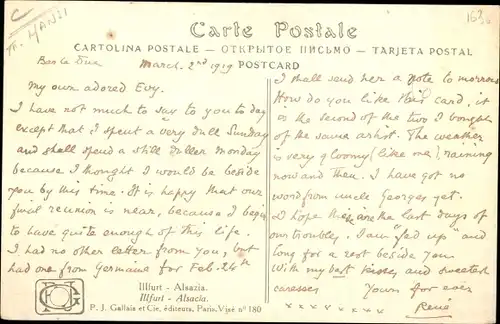 C
TF. HANSI
163
Carte Postale
CARTOLINA POSTALE — ОТКРЫТОЕ ПИСЬМО — TARJETA POSTAL
POSTCARD
Bar le Duc March. 2nd 1919
My own adored Evy.
I have not much to say to you to day
except that I spent a very dull Sunday
and shall spend a still duller Monday
because I thought I would be beside
you by this time. It is happy that our
final reunion is near, because I begin
to have quite enough of this life.
I had no other letter from you, but
had one from Germaine for Feb. 26th
I shall send her a note to morrow
How do you like this card, it
is the second of the two I bought
of the same artist. The weather
is very gloomy (like me), raining
now and then. I have got no
word from uncle Georges yet.
I hope these are the last days of
our troubles. I am "fed up" and
long for a rest beside you.
With my best kisses and sweetest
caresses Yours for ever
René
x x x x x x x
Illfurt - Alsazia.
Illfurt - Alsacia.
P. J. Gallais et Cie, éditeurs, Paris. Visé nº 180